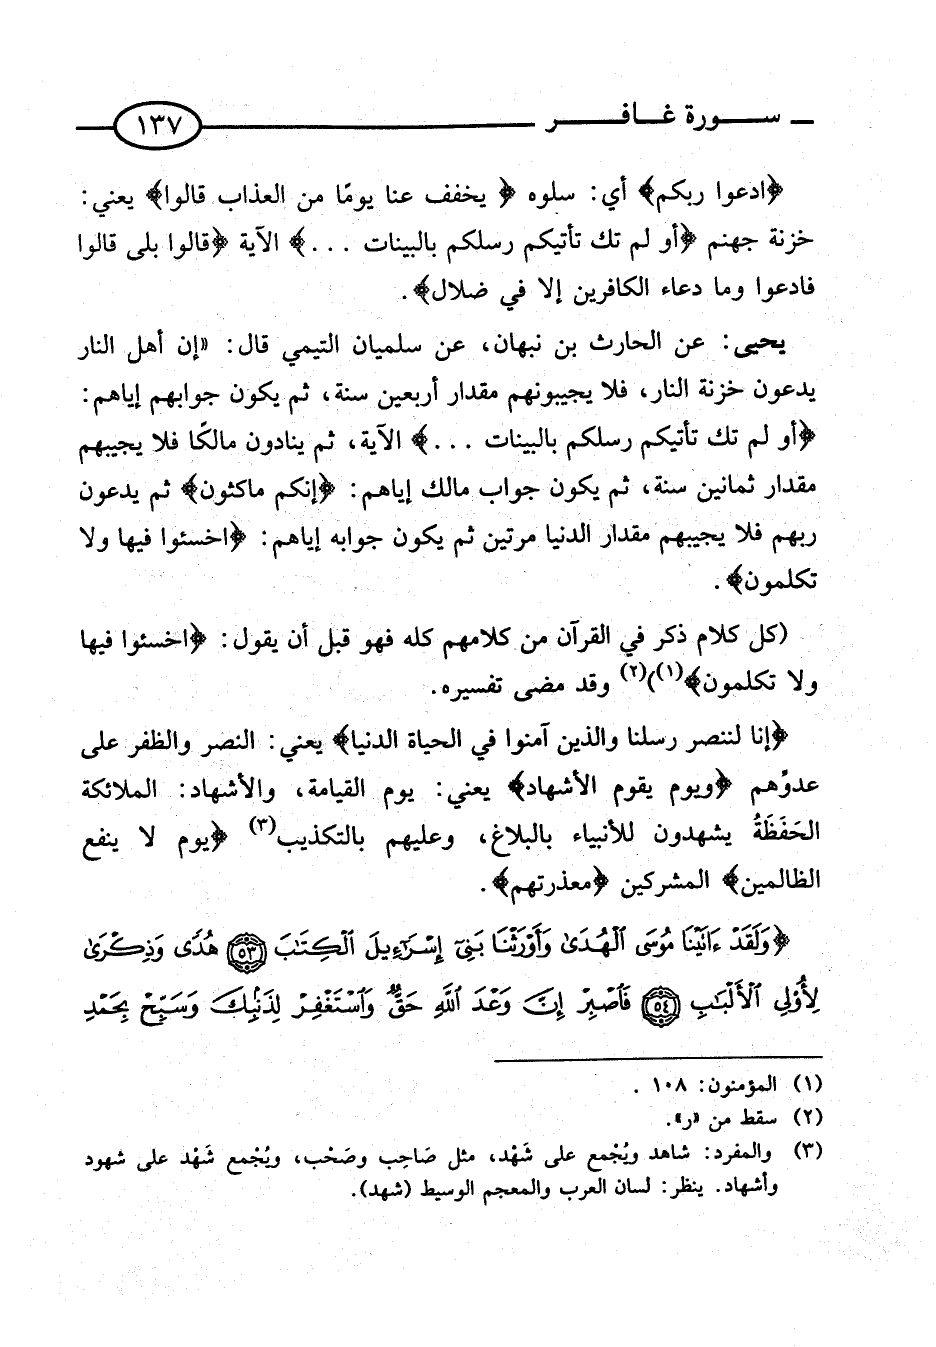 سورة غافر ١٣٧
﴿ادعوا ربكم﴾ أي: سلوه ﴿ يخفف عنا يومًا من العذاب قالوا﴾ يعني:
خزنة جهنم ﴿أو لم تك تأتيكم رسلكم بالبينات ...﴾ الآية ﴿قالوا بلى قالوا
فادعوا وما دعاء الكافرين إلا في ضلال﴾.
يحيى: عن الحارث بن نبهان، عن سلميان التيمي قال: «إن أهل النار
يدعون خزنة النار، فلا يجيبونهم مقدار أربعين سنة، ثم يكون جوابهم إياهم:
﴿أو لم تك تأتيكم رسلكم بالبينات ...﴾ الآية، ثم ينادون مالكًا فلا يجيبهم
مقدار ثمانين سنة، ثم يكون جواب مالك إياهم: ﴿إنكم ماكثون﴾ ثم يدعون
ربهم فلا يجيبهم مقدار الدنيا مرتين ثم يكون جوابه إياهم: ﴿اخسئوا فيها ولا
تكلمون﴾.
(كل كلام ذكر في القرآن من كلامهم كله فهو قبل أن يقول: ﴿اخسئوا فيها
ولا تكلمون﴾(١))(٢) وقد مضى تفسيره.
﴿إنا لننصر رسلنا والذين آمنوا في الحياة الدنيا﴾ يعني: النصر والظفر على
عدوِّهم ﴿ويوم يقوم الأشهاد﴾ يعني: يوم القيامة، والأشهاد: الملائكة
الحَفَظَةُ يشهدون للأنبياء بالبلاغ، وعليهم بالتكذيب(٣) ﴿يوم لا ينفع
الظالمين﴾ المشركين ﴿معذرتهم﴾.
﴿وَلَقَدْ ءَاتَيْنَا مُوسَى ٱلْهُدَىٰ وَأَوْرَثْنَا بَنِىٓ إِسْرَٰٓءِيلَ ٱلْكِتَٰبَ ٥٣ هُدًى وَذِكْرَىٰ
لِأُوْلِى ٱلْأَلْبَٰبِ ٥٤ فَٱصْبِرْ إِنَّ وَعْدَ ٱللَّهِ حَقٌّ وَٱسْتَغْفِرْ لِذَنۢبِكَ وَسَبِّحْ بِحَمْدِ
(١) المؤمنون: ١٠٨ .
(٢) سقط من «ر».
(٣) والمفرد: شاهد ويُجْمع على شَهْد، مثل صَاحِب وصَحْب، ويُجْمع شَهْد على شهود
وأشهاد. ينظر: لسان العرب والمعجم الوسيط (شهد).